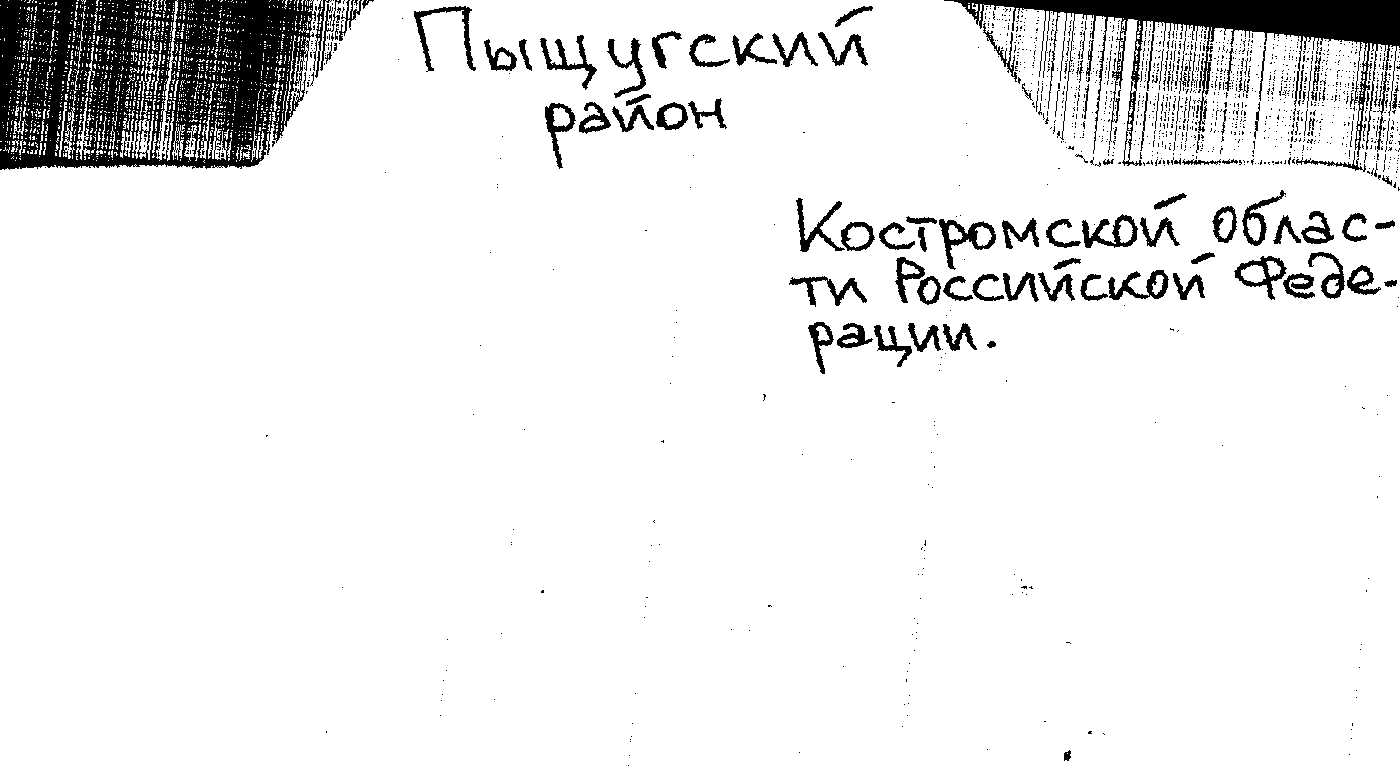 Пыщугский
район
Костромской облас-
ти Российской Феде-
рации.